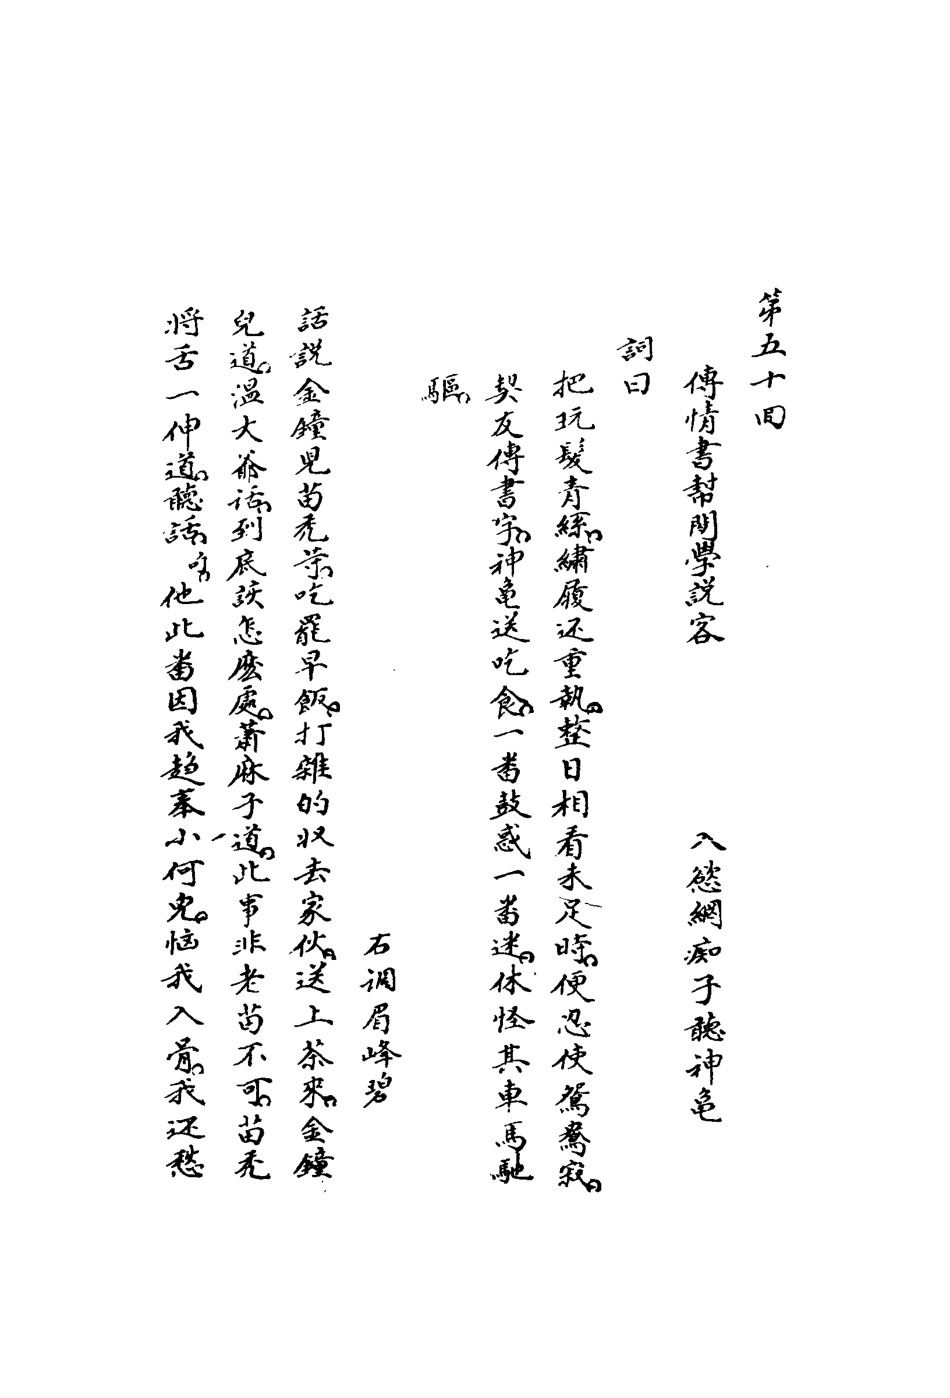 第五十回
傳情書幇閒學說客　入慾網痴子聽神龟
詞曰
把玩髮青絲，繡履还重執。整日相看未足時，便忍使鴛鴦寂。
契友傳書字，神龟送吃食，一畨鼓惑一畨迷，休怪其車馬馳
驅。
右調眉峰碧
話說金鐘兒苗禿等吃罷早飯，打雜的収去家伙，送上茶來。金鐘
兒道：溫大爺话，到底該怎麽處。蕭麻子道，此事非老苗不可。苗禿
將舌一伸道，聽話，他此畨因我趋奉小何兒，恼我入骨，我还愁